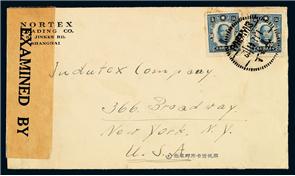 NORTEX
TRADING CO.
JINKEE RD.
SHANGHAI
EXAMINED BY
Indutex Company
366 Broadway
New York, N.Y.
U.S.A